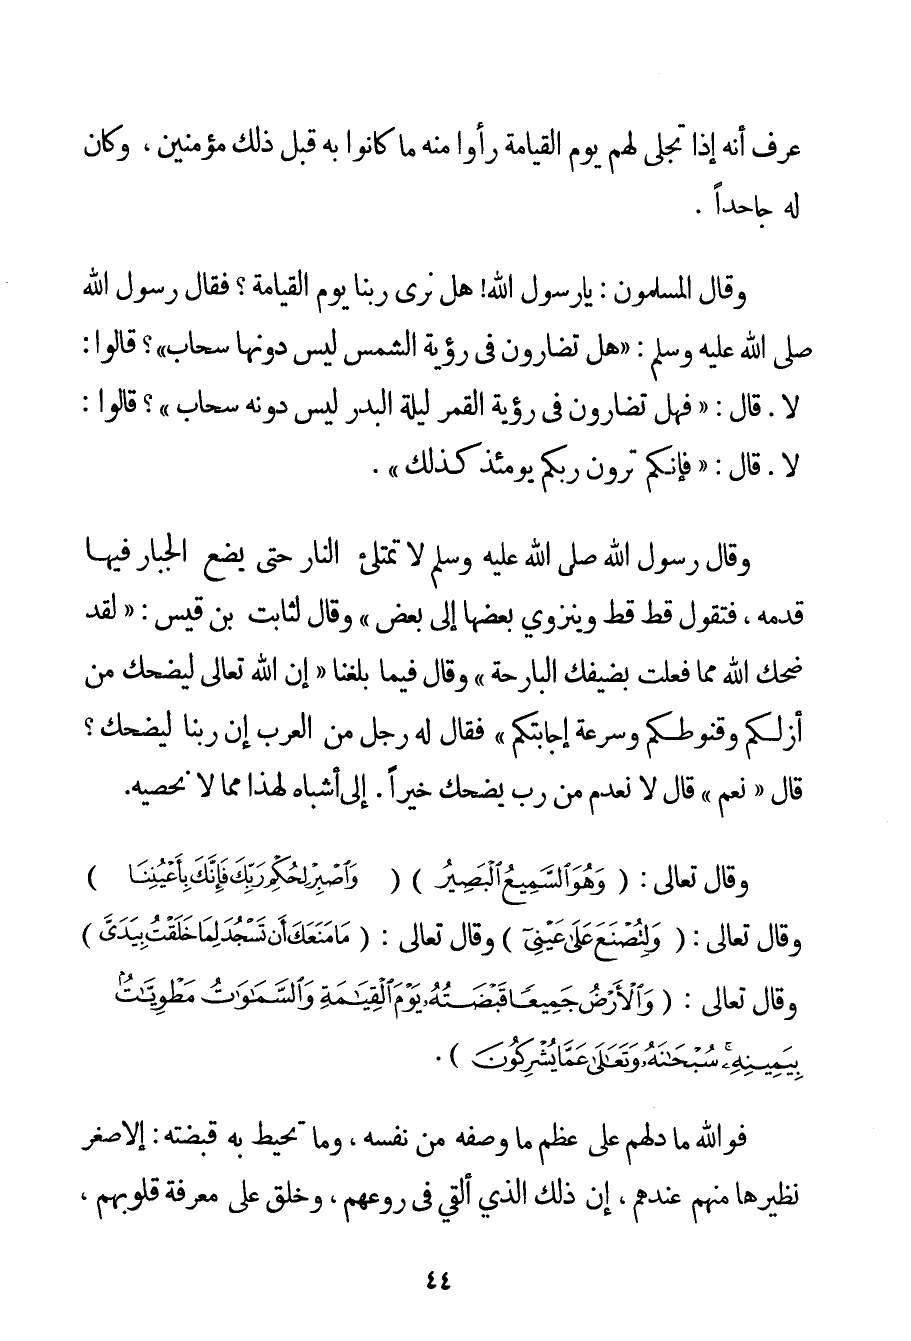 عرف أنه إذا تجلى لهم يوم القيامة رأوا منه ما كانوا به قبل ذلك مؤمنين ، وكان
له جاحداً .
وقال المسلمون : يارسول الله! هل نرى ربنا يوم القيامة ؟ فقال رسول الله
صلى الله عليه وسلم : «هل تضارون فى رؤية الشمس ليس دونها سحاب»؟ قالوا :
لا . قال : « فهل تضارون فى رؤية القمر ليلة البدر ليس دونه سحاب » ؟ قالوا :
لا . قال : « فإنكم ترون ربكم يومئذ كذلك » .
وقال رسول الله صلى الله عليه وسلم لا تمتلئ النار حتى يضع الجبار فيها
قدمه ، فتقول قط قط وينزوي بعضها إلى بعض » وقال لثابت بن قيس : « لقد
ضحك الله مما فعلت بضيفك البارحة » وقال فيما بلغنا « إن الله تعالى ليضحك من
أزلكم وقنوطكم وسرعة إجابتكم » فقال له رجل من العرب إن ربنا ليضحك ؟
قال « نعم » قال لا نعدم من رب يضحك خيراً . إلى أشباه لهذا مما لا نحصيه.
وقال تعالى : ( وَهُوَ ٱلسَّمِيعُ ٱلْبَصِيرُ ) ( وَٱصْبِرْ لِحُكْمِ رَبِّكَ فَإِنَّكَ بِأَعْيُنِنَا )
وقال تعالى : ( وَلِتُصْنَعَ عَلَىٰ عَيْنِىٓ ) وقال تعالى : ( مَا مَنَعَكَ أَن تَسْجُدَ لِمَا خَلَقْتُ بِيَدَىَّ )
وقال تعالى : ( وَٱلْأَرْضُ جَمِيعًا قَبْضَتُهُۥ يَوْمَ ٱلْقِيَٰمَةِ وَٱلسَّمَٰوَٰتُ مَطْوِيَّٰتُۢ
بِيَمِينِهِۦ ۚ سُبْحَٰنَهُۥ وَتَعَٰلَىٰ عَمَّا يُشْرِكُونَ ) .
فوالله ما دلهم على عظم ما وصفه من نفسه ، وما تحيط به قبضته : إلا صغر
نظيرها منهم عندهم ، إن ذلك الذي ألقي فى روعهم ، وخلق على معرفة قلوبهم ،
٤٤